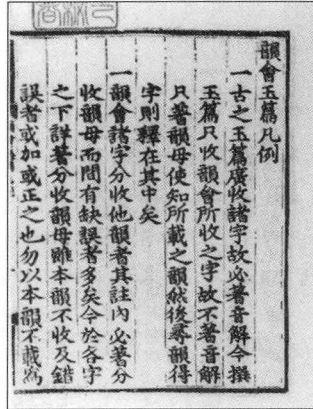 韻會玉篇凡例
一古之玉篇廣收諸字故必著音解今撰
玉篇只收韻會所收之字故不著音解
只著韻母使知所載之韻然後尋韻得
字則釋在其中矣
一韻會諸字分收他韻者其註內必著分
收韻母而間有缺誤者多矣今於各字
之下詳著分收韻母雖本韻不收及錯
誤者或加或正之也勿以本韻不載爲